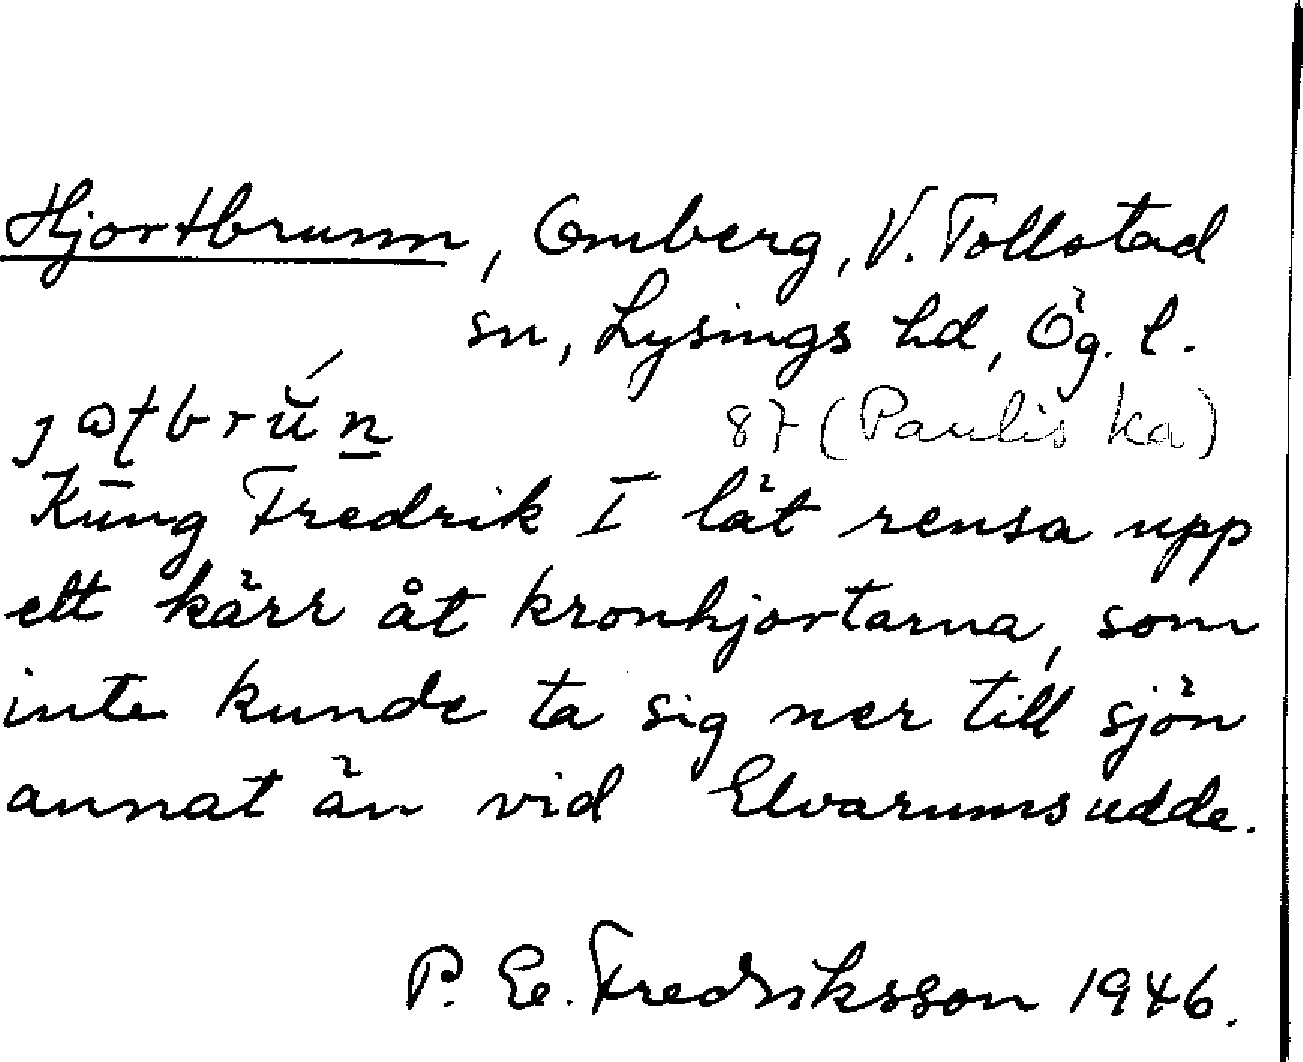 Hjortbrunn, Omberg, V. Tollstad
sn, Lysings hd, Ög. l.
87 (Paulis ka)
Kung Fredrik I lät rensa upp
ett kärr åt kronhjortarna, som
inte kunde ta sig ner till sjön
annat än vid Elvarumsudde.
P. E. Fredriksson 1946.